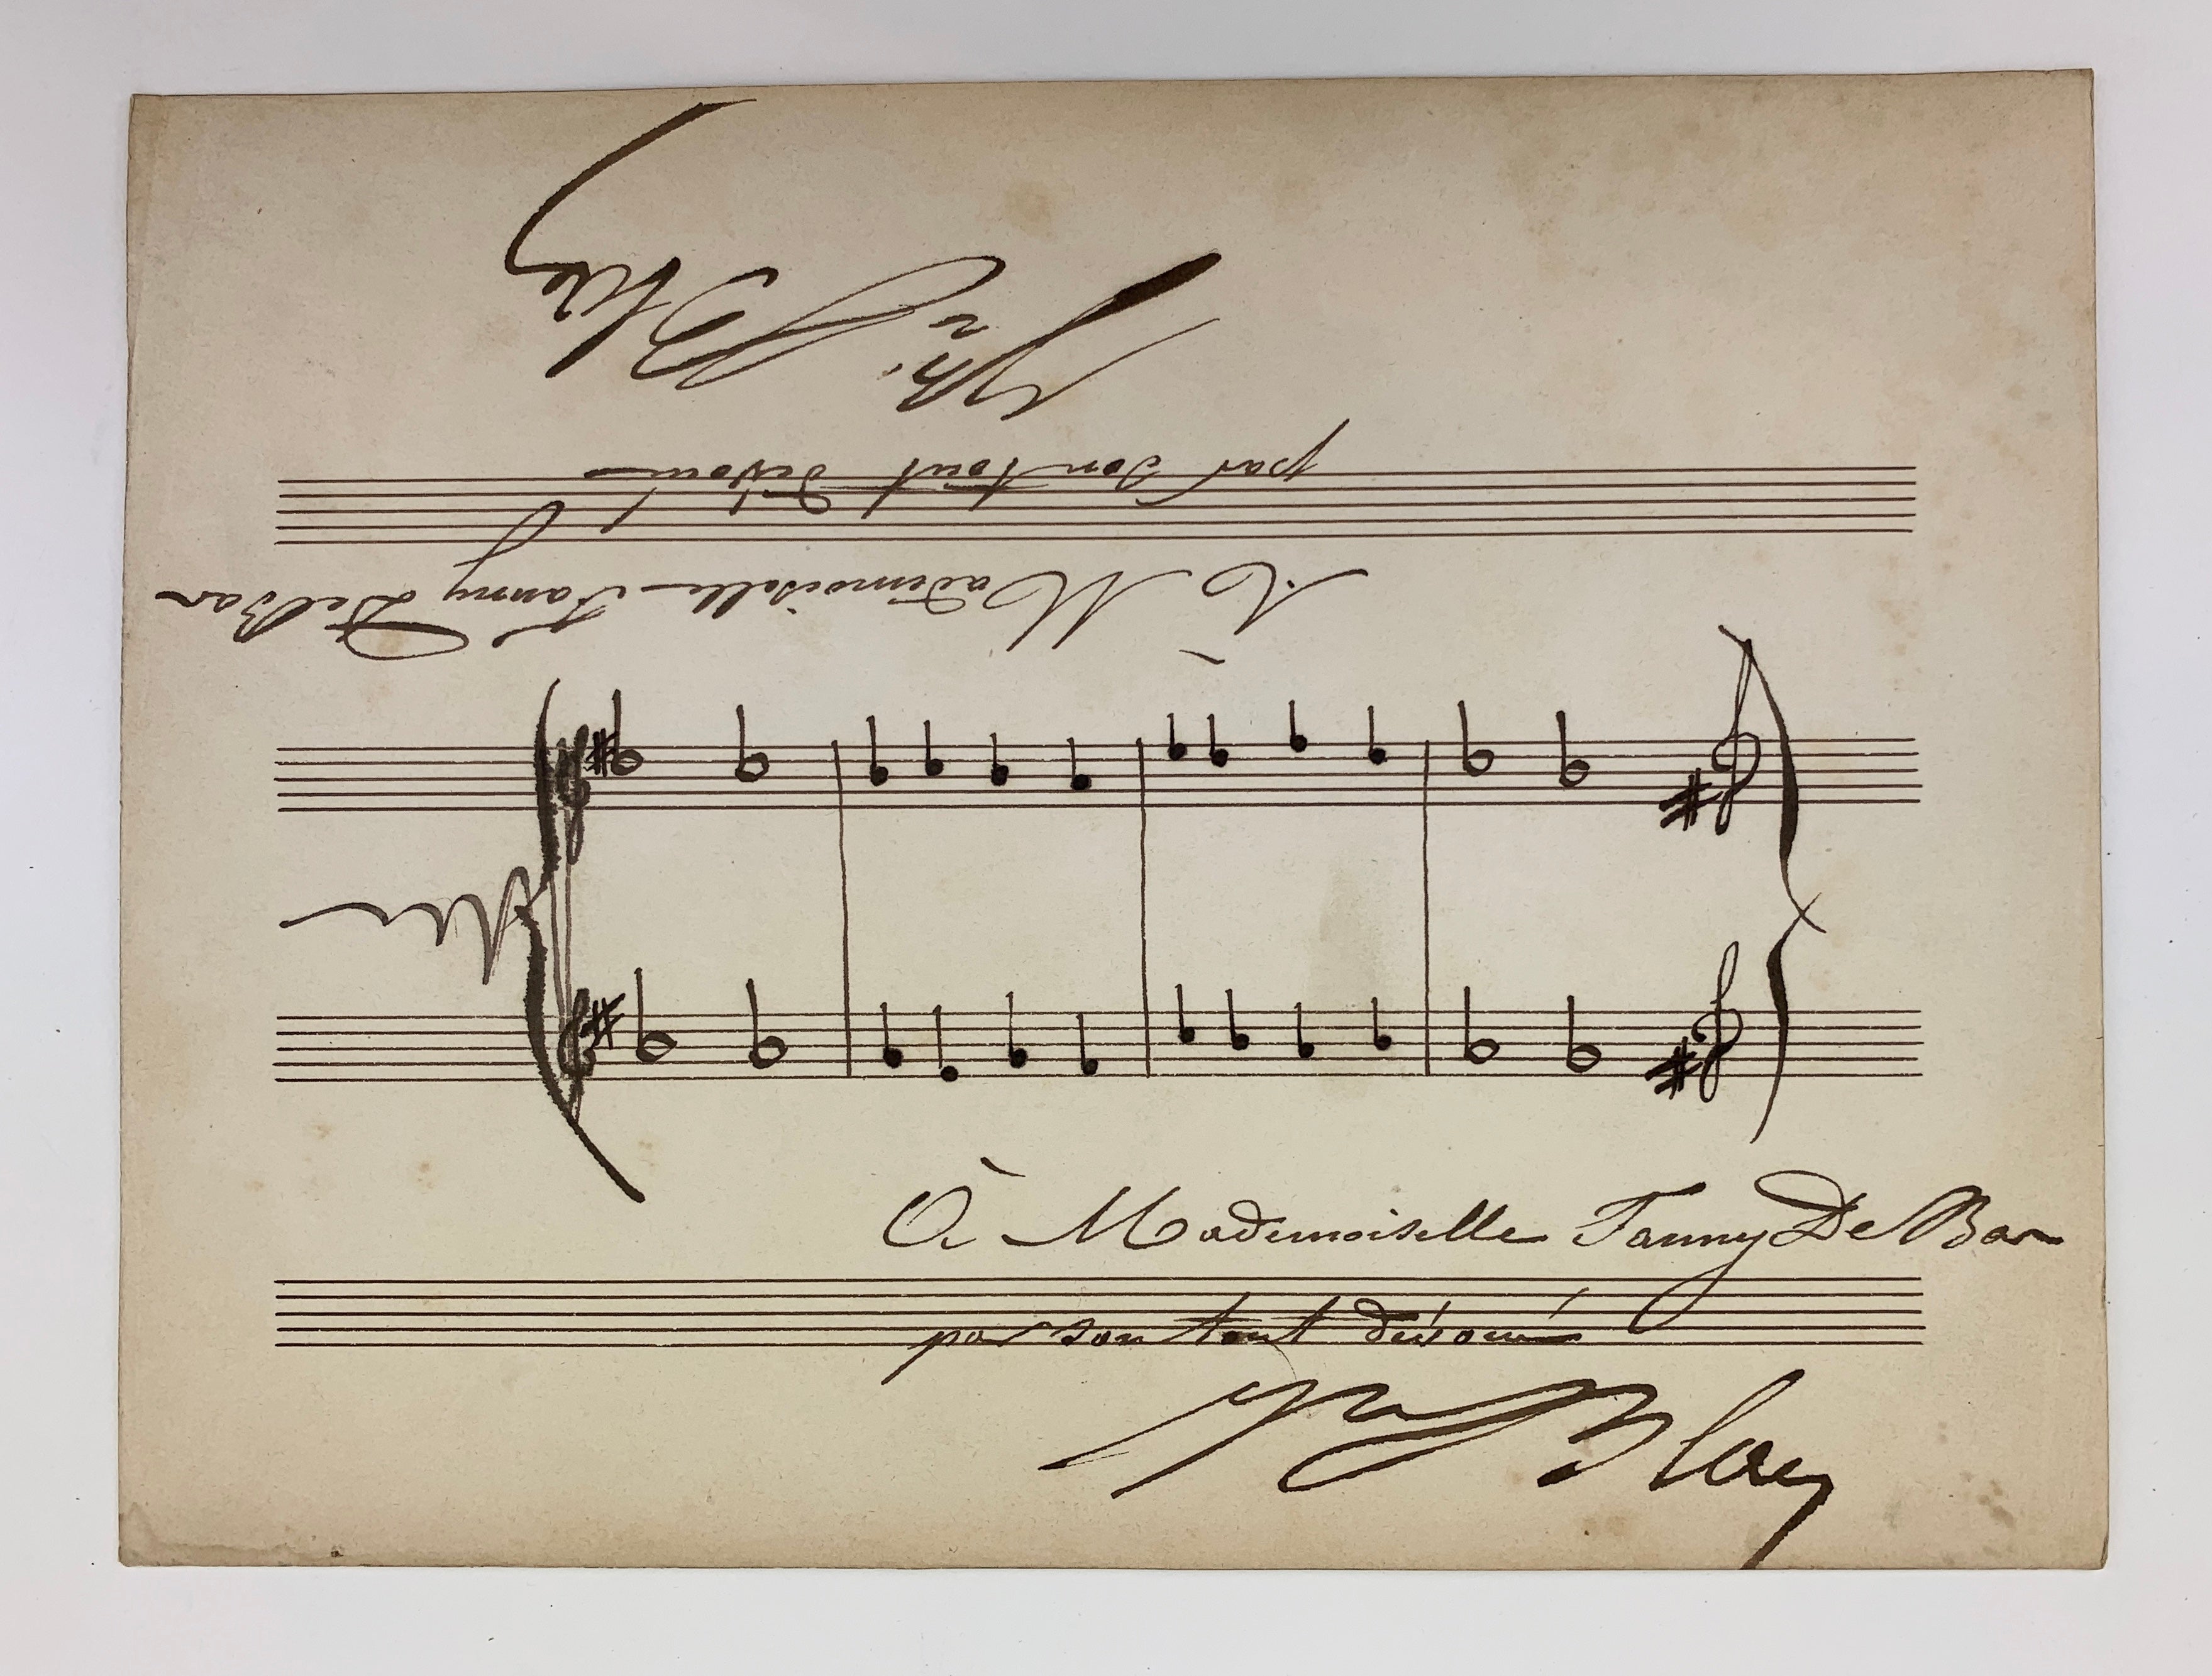 À Mademoiselle Fanny De Bar
par son tout dévoué
À Mademoiselle Fanny De Bar
par son tout dévoué